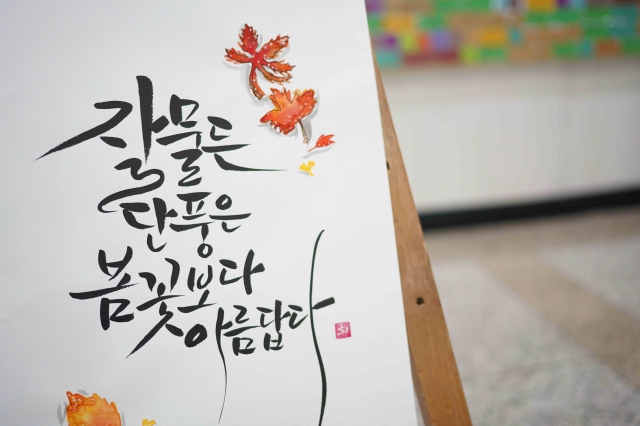 잘물든
단풍은
봄꽃보다
아름답다